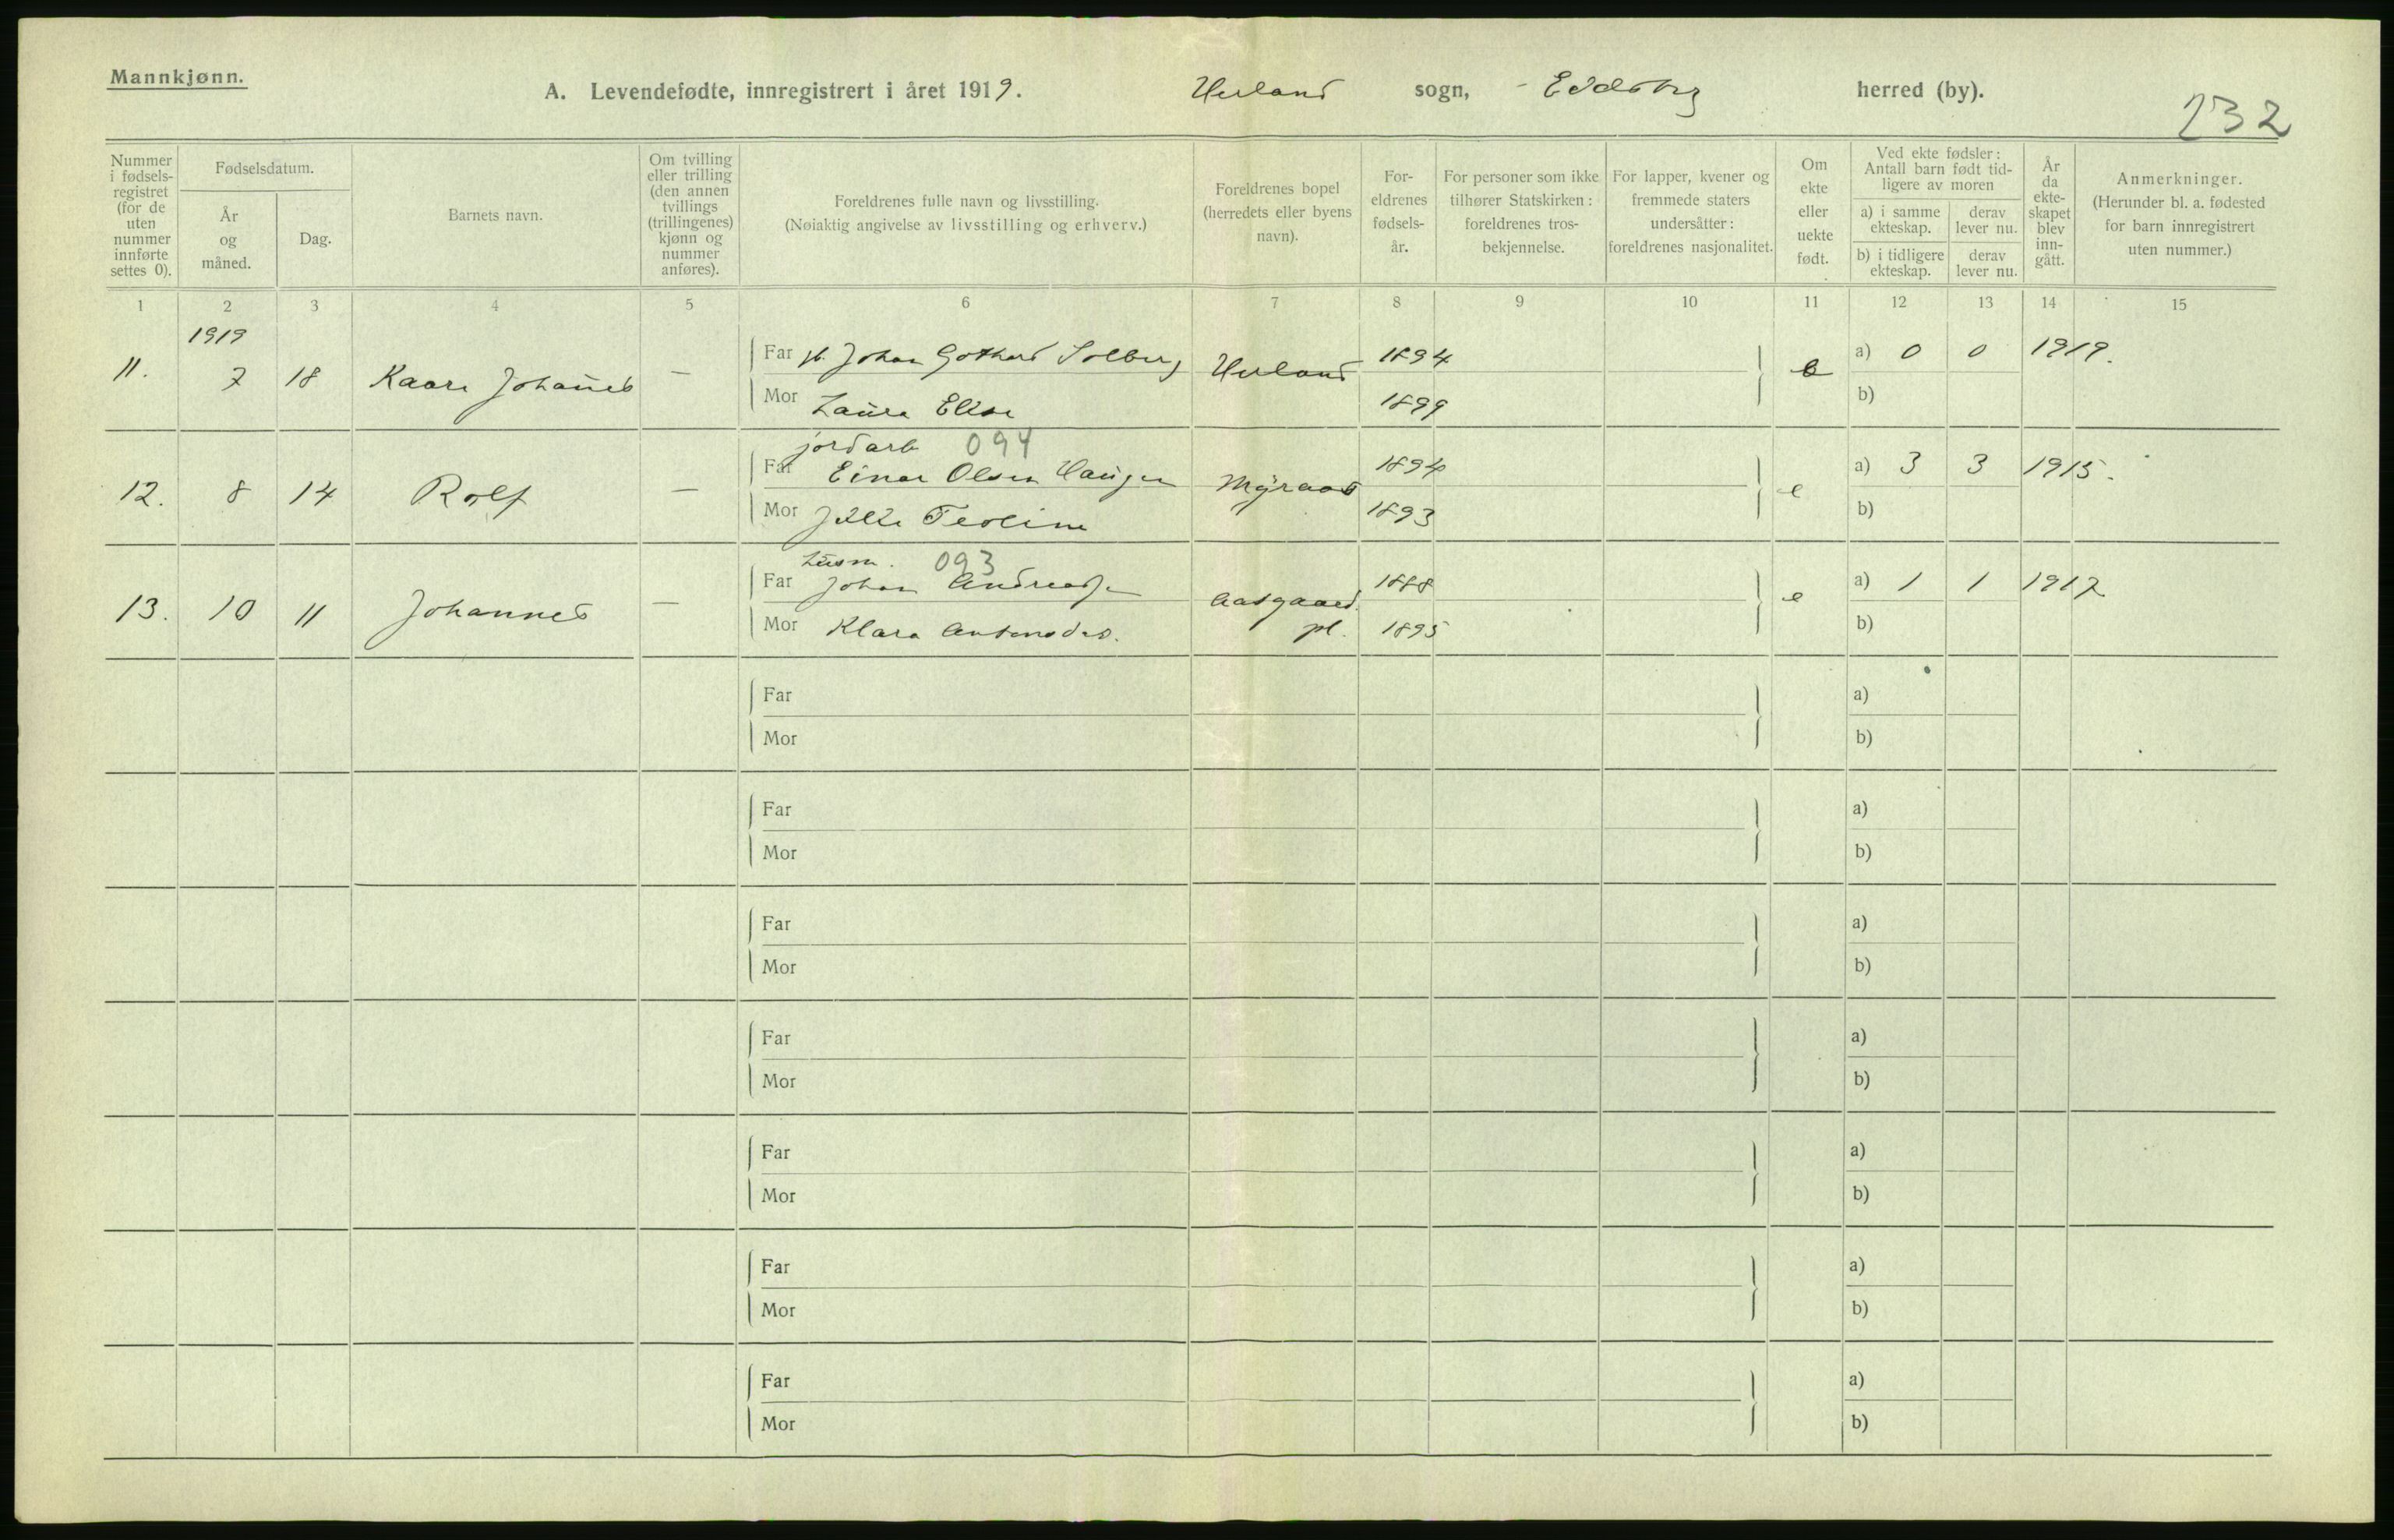 Mannkjønn.
A. Levendefødte, innregistrert i året 1919. Herland sogn, Eidsberg herred (by).
232
Nummer i fødselsregistret (for de uten nummer innførte settes 0).
Fødselsdatum.
År og måned.
Dag.
Barnets navn.
Om tvilling eller trilling (den annen tvillings (trillingenes) kjønn og nummer anføres).
Foreldrenes fulle navn og livsstilling.
(Nøiaktig angivelse av livsstilling og erhverv.)
Foreldrenes bopel (herredets eller byens navn).
Foreldrenes fødselsår.
For personer som ikke tilhører Statskirken: foreldrenes trosbekjennelse.
For lapper, kvener og fremmede staters undersåtter: foreldrenes nasjonalitet.
Om ekte eller uekte født.
Ved ekte fødsler: Antall barn født tidligere av moren
a) i samme ekteskap.
derav lever nu.
b) i tidligere ekteskap.
derav lever nu.
År da ekteskapet blev inngått.
Anmerkninger.
(Herunder bl. a. fødested for barn innregistrert uten nummer.)
1 2 3 4 5 6 7 8 9 10 11 12 13 14 15
1919
11. 7 18 Kaare Johannes — Far Johan Gothard Solberg Herland 1894 e a) 0 0 1919.
Mor Laura Elise 1899 b)
jordarb 094
12. 8 14 Rolf — Far Einar Olsen Haugen Myraas 1894 e a) 3 3 1915.
Mor Teoline 1893 b)
husm. 093
13. 10 11 Johannes — Far Johan Andreas Aasgaard pl. 1888 e a) 1 1 1917
Mor Klara Antonsdas. 1895 b)
Far a)
Mor b)
Far a)
Mor b)
Far a)
Mor b)
Far a)
Mor b)
Far a)
Mor b)
Far a)
Mor b)
Far a)
Mor b)